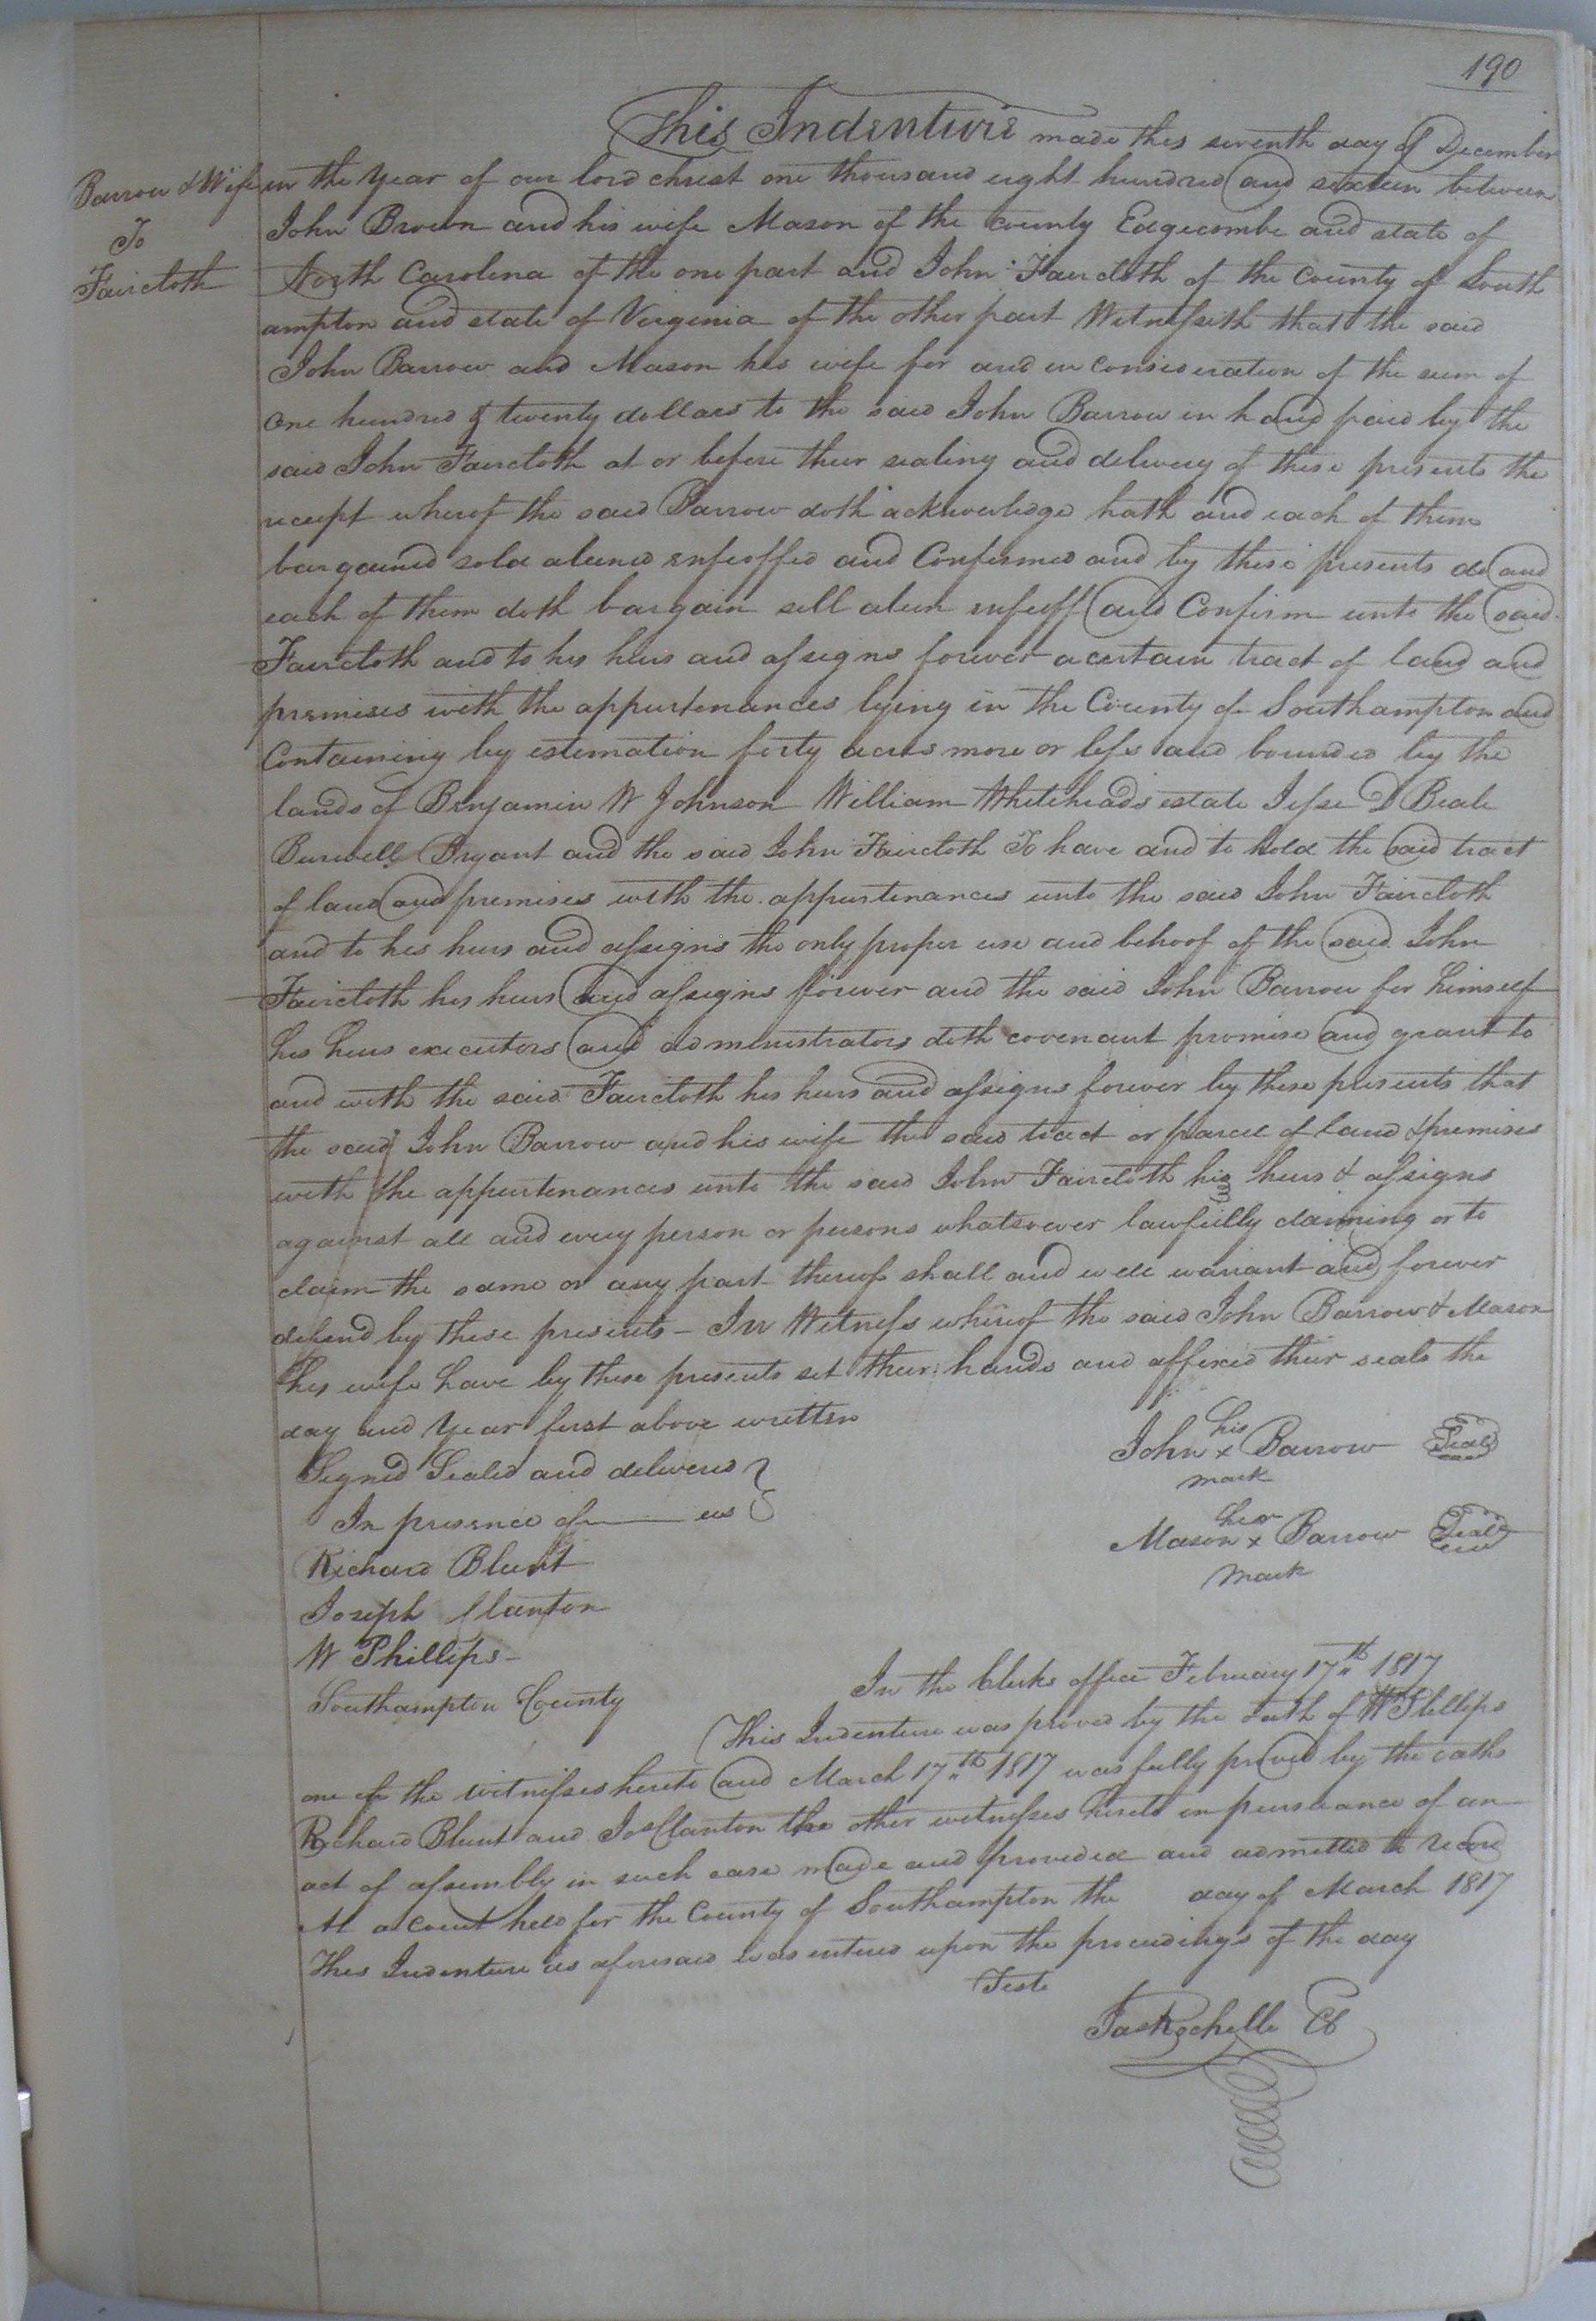 190
This Indenture made this seventh day of December
Barrow & Wife
To
Faircloth
in the Year of our lord christ one thousand eight hundred and sixteen between
John Brown and his wife Mason of the County Edgecombe and state of
North Carolina of the one part and John Faircloth of the County of South
ampton and state of Virginia of the other part Witnesseth that the said
John Barrow and Mason his wife for and in consideration of the sum of
One hundred & twenty dollars to the said John Barrow in hand paid by the
said John Faircloth at or before their sealing and delivery of these presents the
receipt wherof the said Barrow doth acknowledge hath and each of them
bargained sold aliened enfeoffed and Confirmed and by these presents do and
each of them doth bargain sell alien enfeoff and Confirm unto the said
Faircloth and to his heirs and assigns forever a certain tract of land and
premises with the appurtenances lying in the County of Southampton and
Containing by estimation forty acres more or less and bounded by the
lands of Benjamin W Johnson William Whiteheads estate Jesse D Beale
Burwell Bryant and the said John Faircloth To have and to hold the said tract
of land and premises with the appurtenances unto the said John Faircloth
and to his heirs and assigns the only proper use and behoof of the said John
Faircloth his heirs and assigns forever and the said John Barrow for himself
his heirs executors and administrators doth covenant promise and grant to
and with the said Faircloth his heirs and assigns forever by these presents that
the said John Barrow and his wife the said tract or parcel of land & premises
with the appurtenances unto the said John Faircloth his heirs & assigns
against all and every person or persons whatsoever lawfully claiming or to
claim the same or any part thereof shall and will warrant and forever
defend by these presents – In Witness whereof the said John Barrow & Mason
his wife have by these presents set their hands and affixed their seals the
day and Year first above written
Signed Sealed and delivered
In presence of us
Richard Blunt
Joseph Clanton
W Phillips
his
John x Barrow Seal
mark
her
Mason x Barrow Seal
mark
Southampton County
In the Clerks office February 17th 1817
This Indenture was proved by the oath of W Phillips
one of the witnesses hereto and March 17th 1817 was fully proved by the oaths
Richard Blunt and Jos Clanton the other witnesses hereto in pursuance of an
act of assembly in such case made and provided and admitted to record
At a Court held for the County of Southampton the day of March 1817
This Indenture as aforesaid was entered upon the proceedings of the day
Teste
Jas Rochelle CC